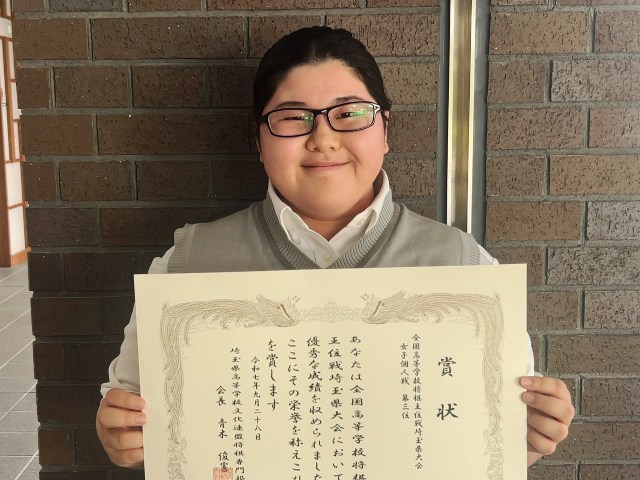 賞状
全国高等学校将棋王位戦埼玉県大会
女子個人戦 第三位
あなたは全国高等学校将棋
王位戦埼玉県大会において
優秀な成績を収められました
ここにその栄誉を称えこれ
を賞します
令和七年九月二十八日
埼玉県高等学校文化連盟将棋専門
会長 青木